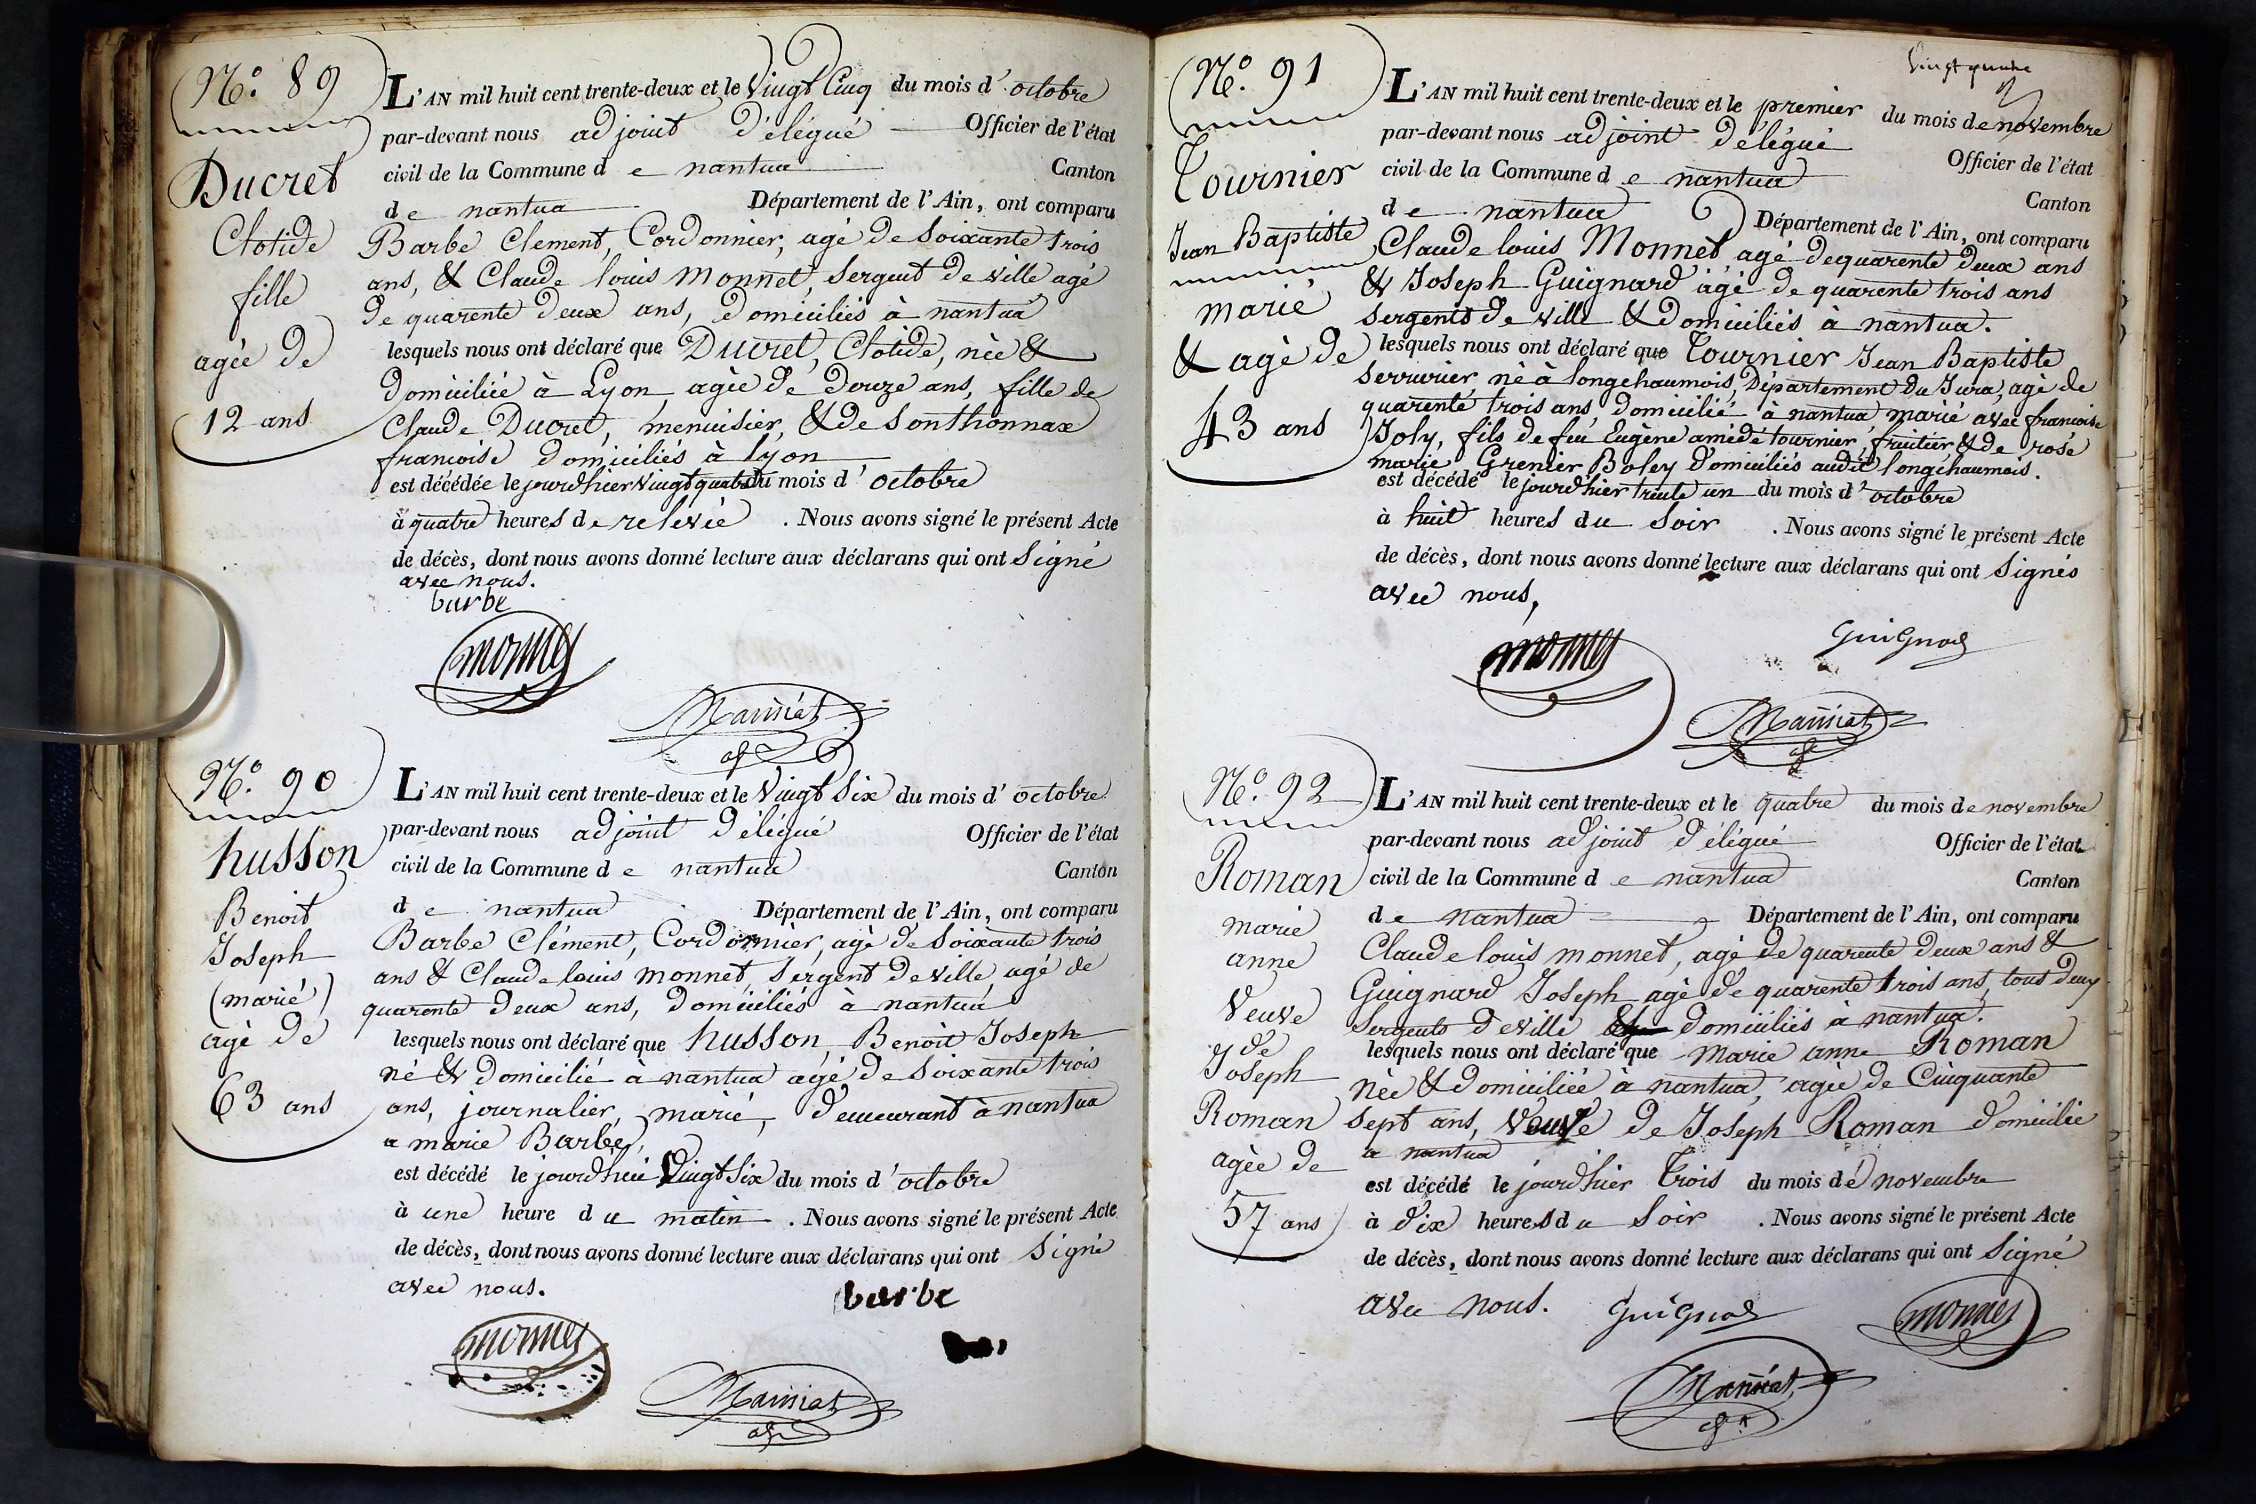 N.º 89
Ducret
Clotide
fille
agée de
12 ans
L'AN mil huit cent trente-deux et le Vingt Cinq du mois d'octobre
par-devant nous adjoint délégué Officier de l'état
civil de la Commune de nantua Canton
de nantua Département de l'Ain, ont comparu
Barbe Clement, Cordonnier, agé de soixante trois
ans, & Claude louis Monnet, sergent de ville agé
de quarente deux ans, domiciliés à nantua
lesquels nous ont déclaré que Ducret, Clotide, née &
domiciliée à Lyon agée de douze ans, fille de
Claude Ducret, menuisier, & de Sonthonnax
francoise domiciliés à lyon
est décédée le jourdhier vingt quatre du mois d'octobre
à quatre heures de relevée. Nous avons signé le présent Acte
de décès, dont nous avons donné lecture aux déclarans qui ont signé
avec nous.
barbe
monnet
N.º 90
husson
Benoit
Joseph
(marié)
agé de
63 ans
L'AN mil huit cent trente-deux et le Vingt Six du mois d'octobre
par-devant nous adjoint délégué Officier de l'état
civil de la Commune de nantua Canton
de nantua Département de l'Ain, ont comparu
Barbe Clément, Cordonnier, agé de soixante trois
ans & Claude louis monnet, sergent de ville, agé de
quarente deux ans, domiciliés à nantua
lesquels nous ont déclaré que husson, Benoit Joseph
né & domicilié à nantua agé de soixante trois
ans, journalier, marié, demeurant à nantua
a marie Barbe,
est décédé le jourdhui Vingt Six du mois d'octobre
à une heure du matin. Nous avons signé le présent Acte
de décès, dont nous avons donné lecture aux déclarans qui ont signé
avec nous.
barbe
monnet
Vingt quatre
N.º 91
Tournier
Jean Baptiste
marié
& agé de
43 ans
L'AN mil huit cent trente-deux et le premier du mois de novembre
par-devant nous adjoint délégué Officier de l'état
civil de la Commune de nantua Canton
de nantua Département de l'Ain, ont comparu
Claude louis Monnet agé de quarente deux ans
& Joseph Guignard agé de quarente trois ans
sergents de ville & domiciliés à nantua.
lesquels nous ont déclaré que Tournier Jean Baptiste
serrurier né à longchaumois, Département du Jura, agé de
quarente trois ans domicilié à nantua marié avec francoise
Joly, fils de feu Eugène amédé tournier, fruitier & de rose
marie Grenier Boley domiciliés audit longchaumois.
est décédé le jourdhier trente un du mois d'octobre
à huit heures du soir. Nous avons signé le présent Acte
de décès, dont nous avons donné lecture aux déclarans qui ont signés
avec nous,
monnet GuiGnard
N.º 92
Roman
marie
anne
veuve
de
Joseph
Roman
agée de
57 ans
L'AN mil huit cent trente-deux et le quatre du mois de novembre
par-devant nous adjoint délégué Officier de l'état
civil de la Commune de nantua Canton
de nantua Département de l'Ain, ont comparu
Claude louis monnet, agé de quarente deux ans &
Guignard Joseph agé de quarente trois ans, tous deux
sergents de ville domiciliés à nantua.
lesquels nous ont déclaré que Marie anne Roman
née & domiciliée à nantua, agée de Cinquante
sept ans, veuve de Joseph Roman domicilié
a nantua
est décédé le jourdhier trois du mois de novembre
à dix heures du soir. Nous avons signé le présent Acte
de décès, dont nous avons donné lecture aux déclarans qui ont signé
avec nous. GuiGnard monnet